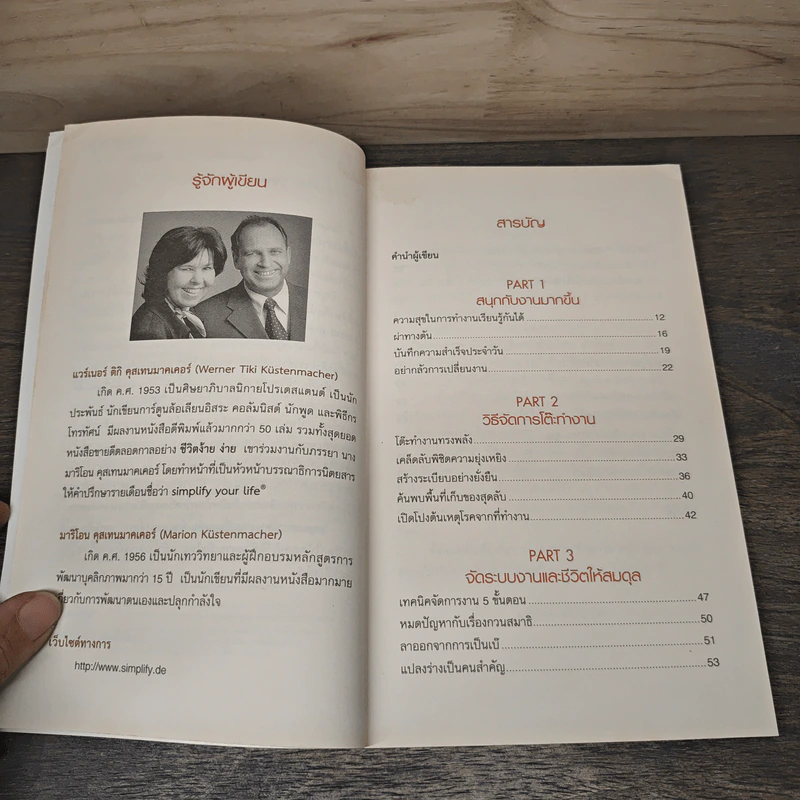 รู้จักผู้เขียน
แวร์เนอร์ ติกิ คุสเทนมาคเคอร์ (Werner Tiki Küstenmacher)
เกิด ค.ศ. 1953 เป็นศิษยาภิบาลนิกายโปรเตสแตนต์ เป็นนัก
ประพันธ์ นักเขียนการ์ตูนล้อเลียนอิสระ คอลัมนิสต์ นักพูด และพิธีกร
โทรทัศน์ มีผลงานหนังสือตีพิมพ์แล้วมากกว่า 50 เล่ม รวมทั้งสุดยอด
หนังสือขายดีตลอดกาลอย่าง ชีวิตง้าย ง่าย เขาร่วมงานกับภรรยา นาง
มาริโอน คุสเทนมาคเคอร์ โดยทำหน้าที่เป็นหัวหน้าบรรณาธิการนิตยสาร
ให้คำปรึกษารายเดือนชื่อว่า simplify your life®
มาริโอน คุสเทนมาคเคอร์ (Marion Küstenmacher)
เกิด ค.ศ. 1956 เป็นนักเทววิทยาและผู้ฝึกอบรมหลักสูตรการ
พัฒนาบุคลิกภาพมากว่า 15 ปี เป็นนักเขียนที่มีผลงานหนังสือมากมาย
เกี่ยวกับการพัฒนาตนเองและปลุกกำลังใจ
เว็บไซต์ทางการ
http://www.simplify.de
สารบัญ
คำนำผู้เขียน
PART 1
สนุกกับงานมากขึ้น
ความสุขในการทำงานเรียนรู้กันได้ 12
ผ่าทางตัน 16
บันทึกความสำเร็จประจำวัน 19
อย่ากลัวการเปลี่ยนงาน 22
PART 2
วิธีจัดการโต๊ะทำงาน
โต๊ะทำงานทรงพลัง 29
เคล็ดลับพิชิตความยุ่งเหยิง 33
สร้างระเบียบอย่างยั่งยืน 36
ค้นพบพื้นที่เก็บของสุดลับ 40
เปิดโปงต้นเหตุโรคจากที่ทำงาน 42
PART 3
จัดระบบงานและชีวิตให้สมดุล
เทคนิคจัดการงาน 5 ขั้นตอน 47
หมดปัญหากับเรื่องกวนสมาธิ 50
ลาออกจากการเป็นเบ๊ 51
แปลงร่างเป็นคนสำคัญ 53